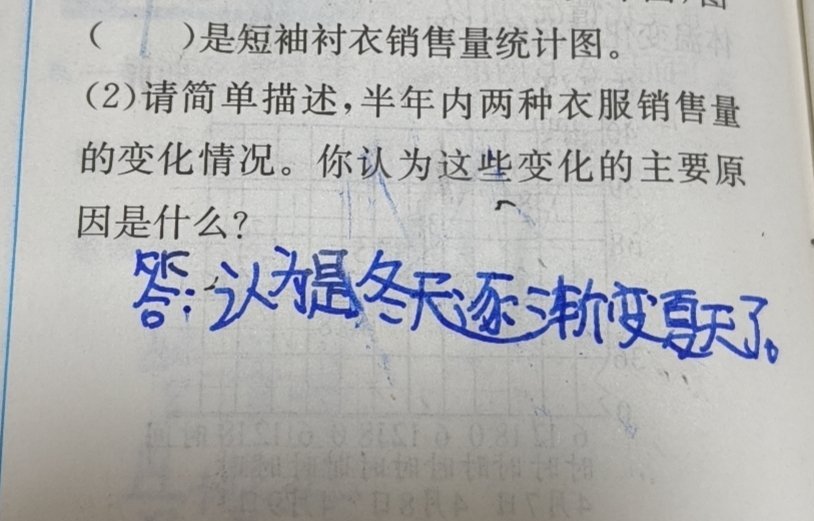 (　　)是短袖衬衣销售量统计图。
(2)请简单描述，半年内两种衣服销售量
的变化情况。你认为这些变化的主要原
因是什么？
答：认为是冬天逐渐变夏天了。